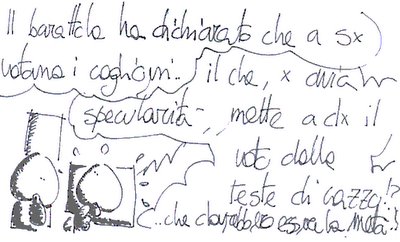 Il barattolo ha dichiarato che a sx
votano i coglioni.. il che, x ovvia
specularità, mette a dx il
voto delle
teste di cazzo!?
... che dovrebbero essere la metà!!